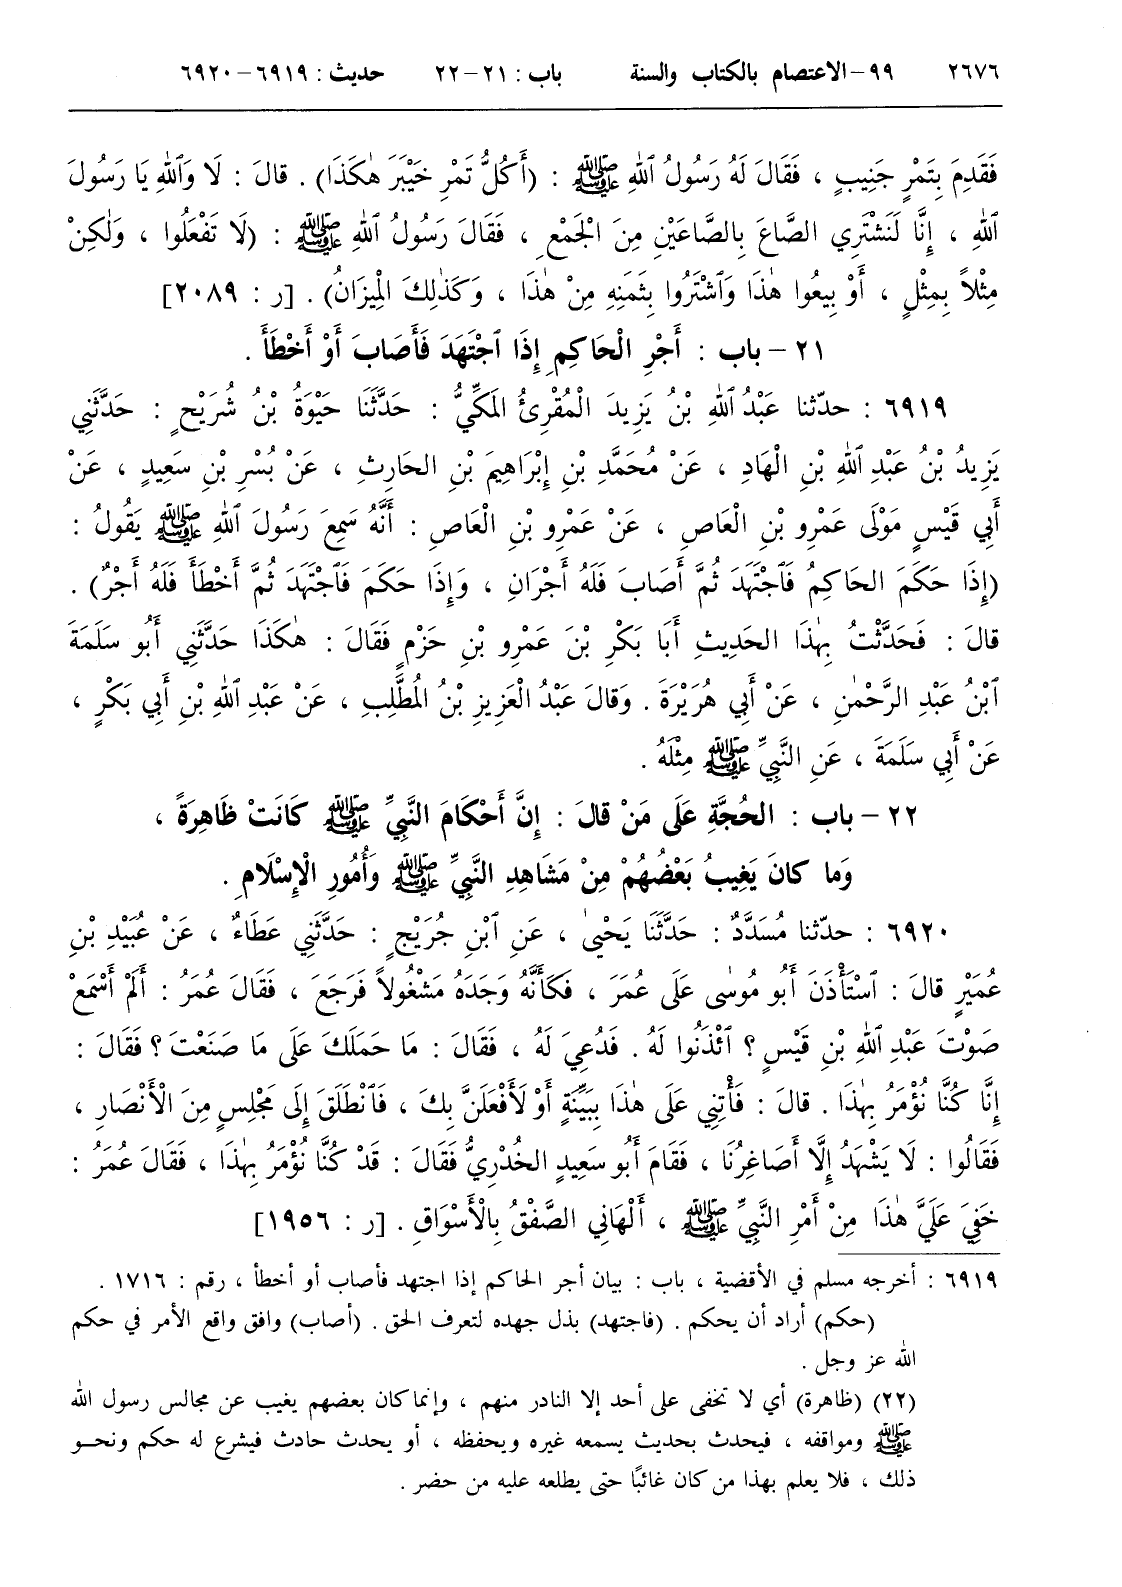 ٢٦٧٦ ٩٩-الاعتصام بالكتاب والسنة باب : ٢١-٢٢ حديث : ٦٩١٩-٦٩٢٠
فَقَدِمَ بِتَمْرٍ جَنِيبٍ ، فَقَالَ لَهُ رَسُولُ ٱللهِ ﷺ : (أَكُلُّ تَمْرِ خَيْبَرَ هٰكَذَا) . قالَ : لَا وَٱللهِ يَا رَسُولَ
ٱللهِ ، إِنَّا لَنَشْتَرِي الصَّاعَ بِالصَّاعَيْنِ مِنَ الْجَمْعِ ، فَقَالَ رَسُولُ ٱللهِ ﷺ : (لَا تَفْعَلُوا ، وَلٰكِنْ
مِثْلاً بِمِثْلٍ ، أَوْ بِيعُوا هٰذَا وَٱشْتَرُوا بِثَمَنِهِ مِنْ هٰذَا ، وَكَذٰلِكَ الْمِيزَانُ) . [ر : ٢٠٨٩]
٢١ - باب : أَجْرِ الْحَاكِمِ إِذَا ٱجْتَهَدَ فَأَصَابَ أَوْ أَخْطَأَ .
٦٩١٩ : حدّثنا عَبْدُ ٱللهِ بْنُ يَزِيدَ الْمُقْرِئُ المَكِّيُّ : حَدَّثَنَا حَيْوَةُ بْنُ شُرَيْحٍ : حَدَّثَنِي
يَزِيدُ بْنُ عَبْدِ ٱللهِ بْنِ الْهَادِ ، عَنْ مُحَمَّدِ بْنِ إِبْرَاهِيمَ بْنِ الحَارِثِ ، عَنْ بُسْرِ بْنِ سَعِيدٍ ، عَنْ
أَبِي قَيْسٍ مَوْلَى عَمْرِو بْنِ الْعَاصِ ، عَنْ عَمْرِو بْنِ الْعَاصِ : أَنَّهُ سَمِعَ رَسُولَ ٱللهِ ﷺ يَقُولُ :
(إِذَا حَكَمَ الحَاكِمُ فَٱجْتَهَدَ ثُمَّ أَصَابَ فَلَهُ أَجْرَانِ ، وَإِذَا حَكَمَ فَٱجْتَهَدَ ثُمَّ أَخْطَأَ فَلَهُ أَجْرٌ) .
قالَ : فَحَدَّثْتُ بِهٰذَا الحَدِيثِ أَبَا بَكْرِ بْنَ عَمْرِو بْنِ حَزْمٍ فَقَالَ : هٰكَذَا حَدَّثَنِي أَبُو سَلَمَةَ
ٱبْنُ عَبْدِ الرَّحْمٰنِ ، عَنْ أَبِي هُرَيْرَةَ . وَقالَ عَبْدُ الْعَزِيزِ بْنُ المُطَّلِبِ ، عَنْ عَبْدِ ٱللهِ بْنِ أَبِي بَكْرٍ ،
عَنْ أَبِي سَلَمَةَ ، عَنِ النَّبِيِّ ﷺ مِثْلَهُ .
٢٢ - باب : الحُجَّةِ عَلَى مَنْ قالَ : إِنَّ أَحْكَامَ النَّبِيِّ ﷺ كَانَتْ ظَاهِرَةً ،
وَما كانَ يَغِيبُ بَعْضُهُمْ مِنْ مَشَاهِدِ النَّبِيِّ ﷺ وَأُمُورِ الْإِسْلَامِ .
٦٩٢٠ : حدّثنا مُسَدَّدٌ : حَدَّثَنَا يَحْيىٰ ، عَنِ ٱبْنِ جُرَيْجٍ : حَدَّثَنِي عَطَاءٌ ، عَنْ عُبَيْدِ بْنِ
عُمَيْرٍ قالَ : ٱسْتَأْذَنَ أَبُو مُوسٰى عَلَى عُمَرَ ، فَكَأَنَّهُ وَجَدَهُ مَشْغُولاً فَرَجَعَ ، فَقَالَ عُمَرُ : أَلَمْ أَسْمَعْ
صَوْتَ عَبْدِ ٱللهِ بْنِ قَيْسٍ ؟ ٱئْذَنُوا لَهُ . فَدُعِيَ لَهُ ، فَقَالَ : مَا حَمَلَكَ عَلَى مَا صَنَعْتَ ؟ فَقَالَ :
إِنَّا كُنَّا نُؤْمَرُ بِهٰذَا . قالَ : فَأْتِنِي عَلَى هٰذَا بِبَيِّنَةٍ أَوْ لَأَفْعَلَنَّ بِكَ ، فَٱنْطَلَقَ إِلَى مَجْلِسٍ مِنَ الْأَنْصَارِ ،
فَقَالُوا : لَا يَشْهَدُ إِلَّا أَصَاغِرُنَا ، فَقَامَ أَبُو سَعِيدٍ الخُدْرِيُّ فَقَالَ : قَدْ كُنَّا نُؤْمَرُ بِهٰذَا ، فَقَالَ عُمَرُ :
خَفِيَ عَلَيَّ هٰذَا مِنْ أَمْرِ النَّبِيِّ ﷺ ، أَلْهَانِي الصَّفْقُ بِالْأَسْوَاقِ . [ر : ١٩٥٦]
٦٩١٩ : أخرجه مسلم في الأقضية ، باب : بيان أجر الحاكم إذا اجتهد فأصاب أو أخطأ ، رقم : ١٧١٦ .
(حكم) أراد أن يحكم . (فاجتهد) بذل جهده لتعرف الحق . (أصاب) وافق واقع الأمر في حكم
الله عز وجل .
(٢٢) (ظاهرة) أي لا تخفى على أحد إلا النادر منهم ، وإنما كان بعضهم يغيب عن مجالس رسول الله
ﷺ ومواقفه ، فيحدث بحديث يسمعه غيره ويحفظه ، أو يحدث حادث فيشرع له حكم ونحـو
ذلك ، فلا يعلم بهذا من كان غائبًا حتى يطلعه عليه من حضر .